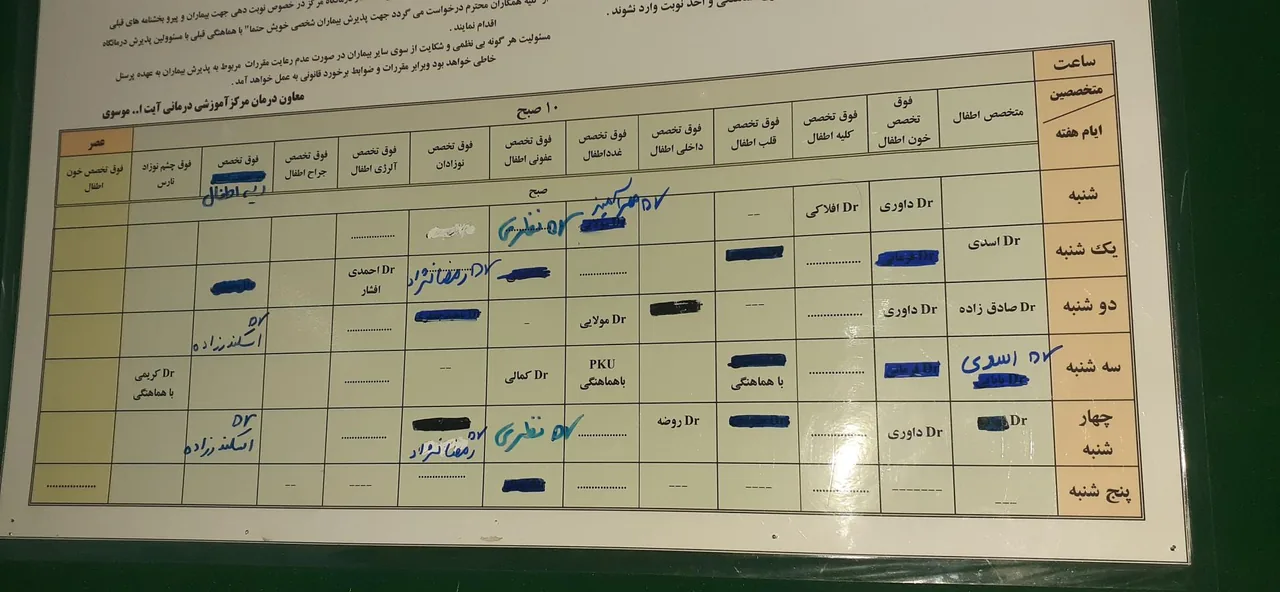 درمانگاه مرکز در خصوص نوبت دهی جهت بیماران و پیرو بخشنامه های قبلی
از کلیه همکاران محترم درخواست می گردد جهت پذیرش بیماران شخصی خویش حتما" با هماهنگی قبلی با مسوولین پذیرش درمانگاه
اقدام نمایند .
مسئولیت هر گونه بی نظمی و شکایت از سوی سایر بیماران در صورت عدم رعایت مقررات مربوط به پذیرش بیماران به عهده پرسنل
خاطی خواهد بود وبرابر مقررات و ضوابط برخورد قانونی به عمل خواهد آمد .
معاون درمان مرکزآموزشی درمانی آیت ا.. موسوی
و اخذ نوبت وارد نشوند .
ساعت
۱۰ صبح
عصر
متخصصین
ایام هفته
متخصص اطفال
فوق تخصص خون اطفال
فوق تخصص کلیه اطفال
فوق تخصص قلب اطفال
فوق تخصص داخلی اطفال
فوق تخصص غدداطفال
فوق تخصص عفونی اطفال
فوق تخصص نوزادان
فوق تخصص آلرژی اطفال
فوق تخصص جراح اطفال
فوق تخصص
اطفال
فوق چشم نوزاد نارس
فوق تخصص خون اطفال
صبح
شنبه
Dr داوری
Dr افلاکی
--
Dr
Dr نظری
...............
یک شنبه
Dr اسدی
...............
...............
Dr رمضانژاد
Dr احمدی افشار
دو شنبه
Dr صادق زاده
Dr داوری
...............
---
Dr مولایی
-
...............
Dr اسکندرزاده
سه شنبه
Dr اسدی
...............
با هماهنگی
PKU باهماهنگی
Dr کمالی
--
...............
Dr کریمی با هماهنگی
چهار شنبه
Dr
Dr داوری
...............
Dr روضه
...............
Dr نظری
Dr رمضانژاد
...............
Dr اسکندرزاده
پنج شنبه
---
-------
...............
---
---
...............
...............
----
--
...............